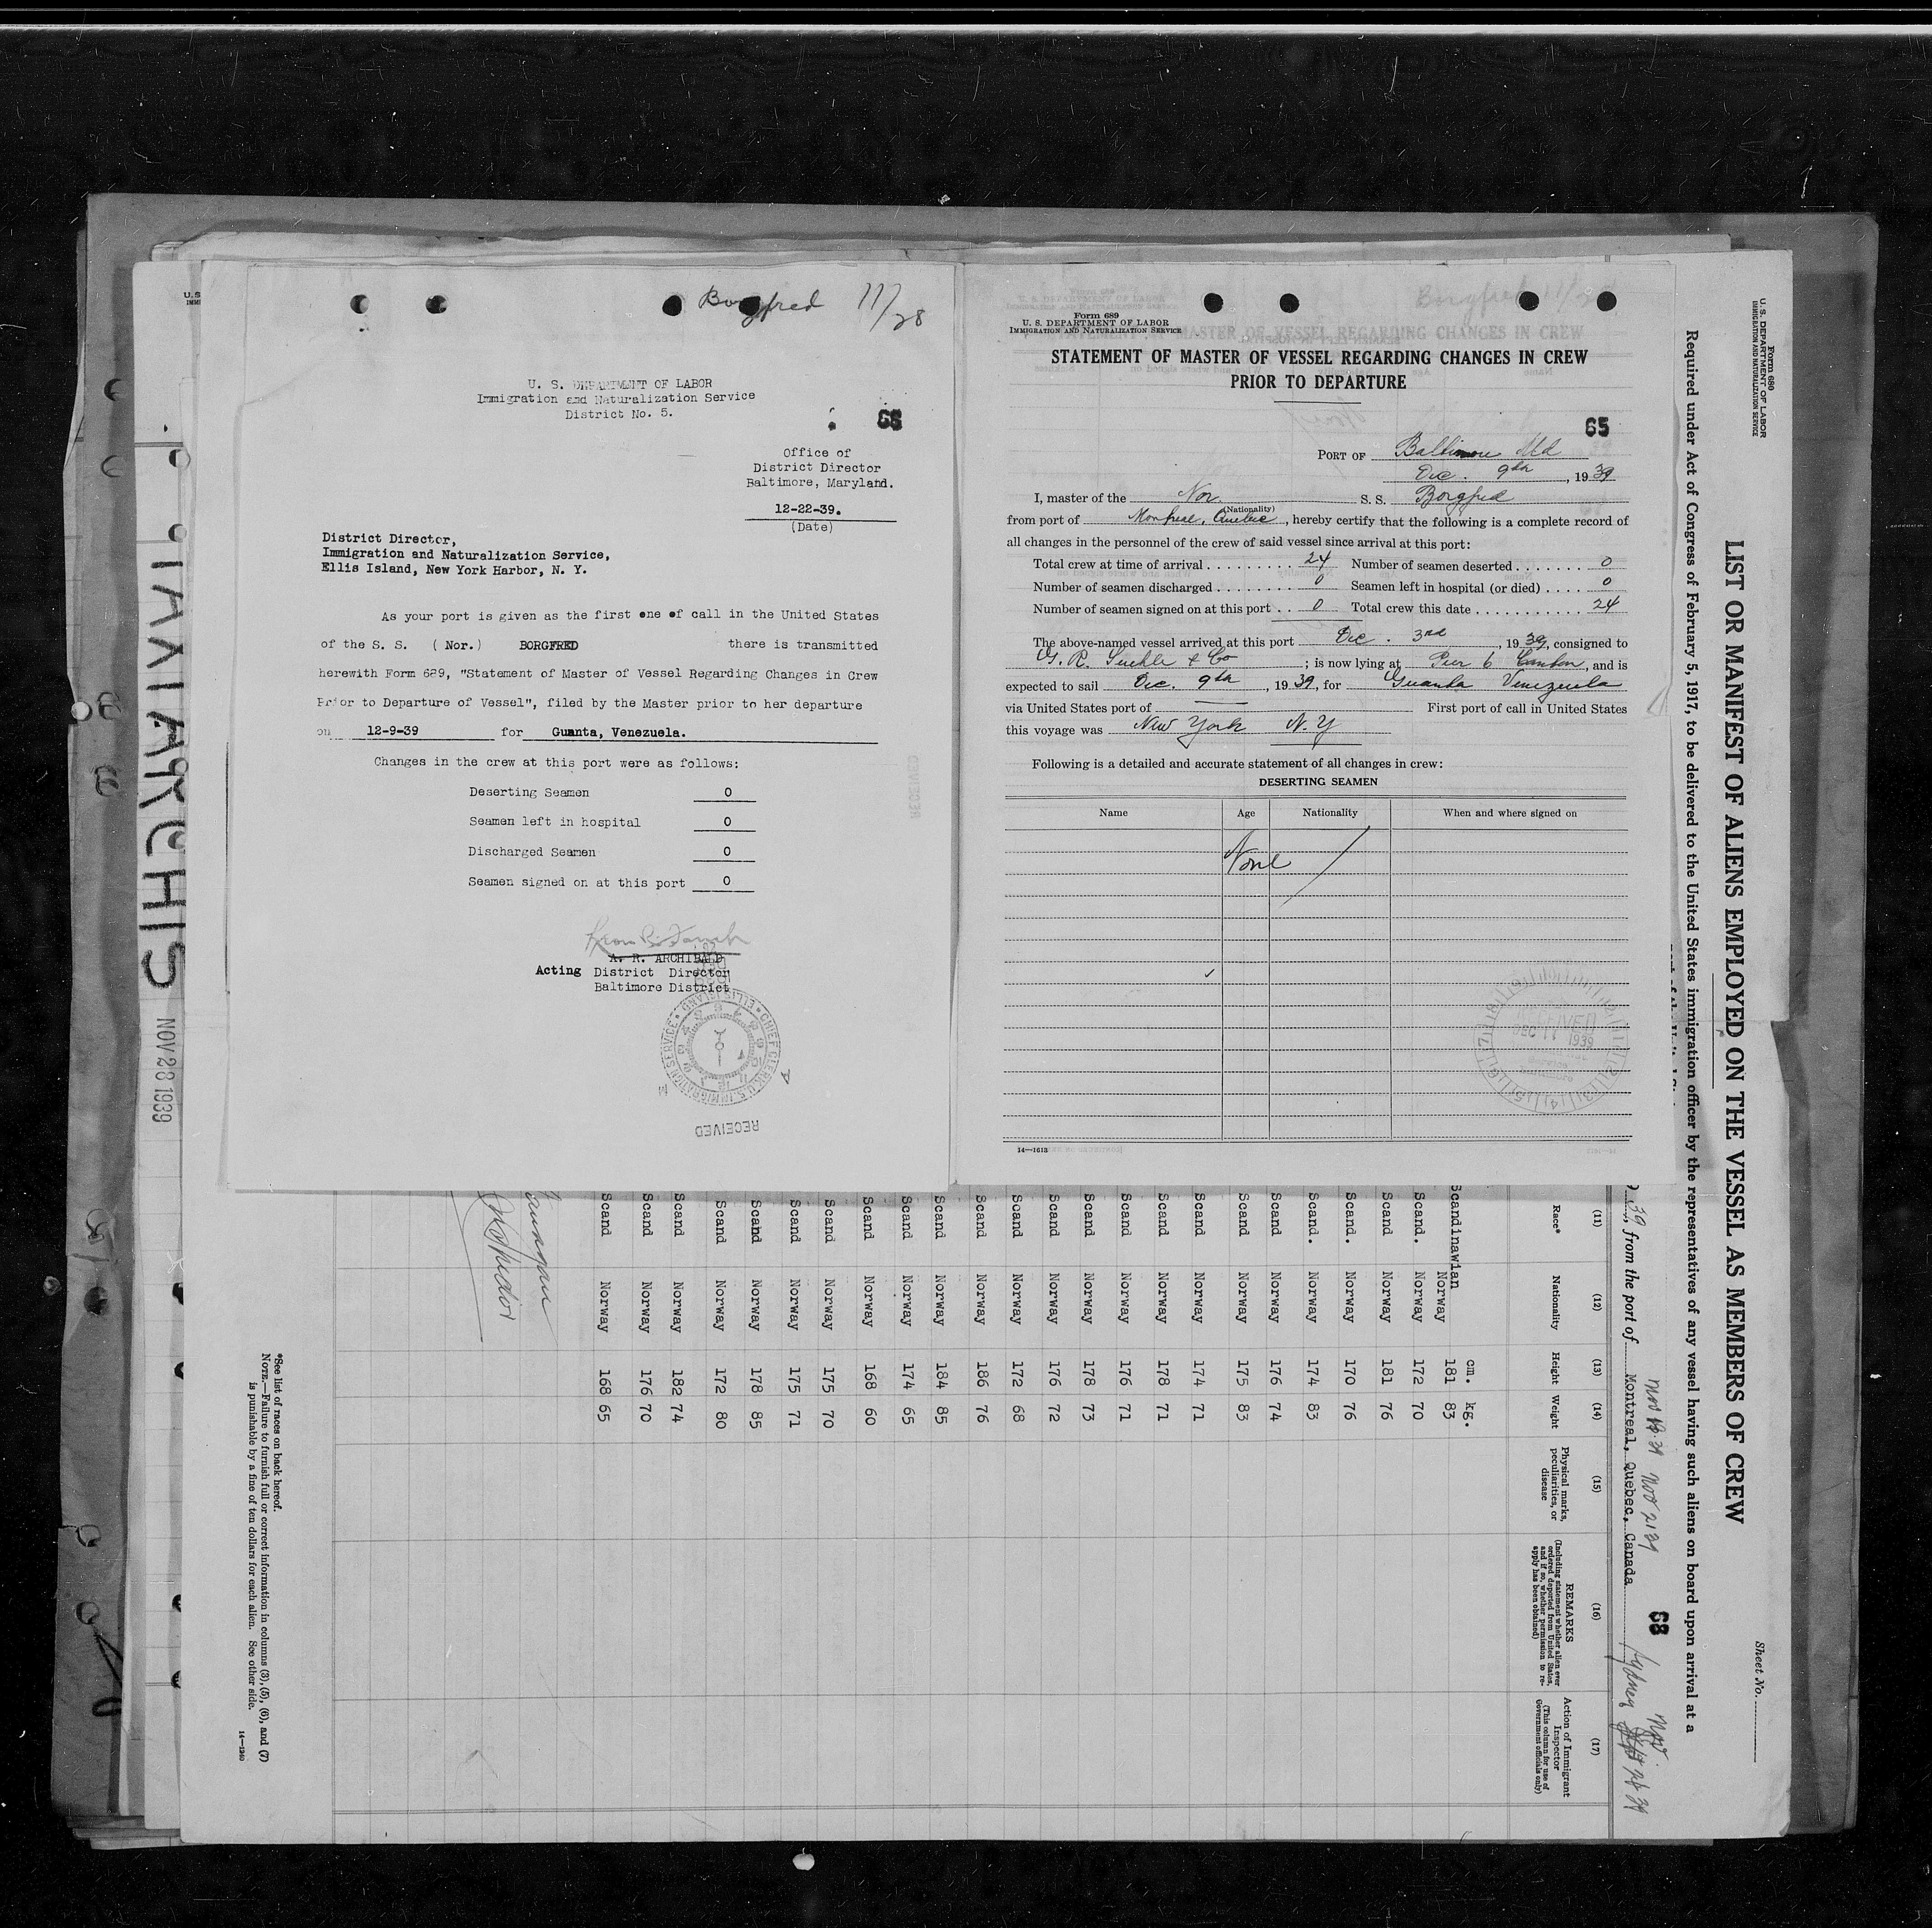 Borgfred 11/28
U. S. DEPARTMENT OF LABOR
Immigration and Naturalization Service
District No. 5.
66
Office of
District Director
Baltimore, Maryland.
12-22-39.
(Date)
District Director,
Immigration and Naturalization Service,
Ellis Island, New York Harbor, N. Y.
As your port is given as the first one of call in the United States
of the S. S. ( Nor.) BORGFRED there is transmitted
herewith Form 689, "Statement of Master of Vessel Regarding Changes in Crew
Prior to Departure of Vessel", filed by the Master prior to her departure
on 12-9-39 for Guanta, Venezuela.
Changes in the crew at this port were as follows:
Deserting Seamen 0
Seamen left in hospital 0
Discharged Seamen 0
Seamen signed on at this port 0
A. R. ARCHIBALD
Acting District Director
Baltimore District
CHIEF CLERK U. S. IMMIGRATION SERVICE ELLIS ISLAND
RECEIVED
Form 689
U. S. DEPARTMENT OF LABOR
IMMIGRATION AND NATURALIZATION SERVICE
STATEMENT OF MASTER OF VESSEL REGARDING CHANGES IN CREW
PRIOR TO DEPARTURE
65
PORT OF Baltimore Md
Dec. 9th, 1939
I, master of the Nor. S. S. Borgfred
(Nationality)
from port of Montreal, Quebec, hereby certify that the following is a complete record of
all changes in the personnel of the crew of said vessel since arrival at this port:
Total crew at time of arrival 24 Number of seamen deserted 0
Number of seamen discharged 0 Seamen left in hospital (or died) 0
Number of seamen signed on at this port 0 Total crew this date 24
The above-named vessel arrived at this port Dec. 3rd, 1939, consigned to
& Co ; is now lying at Pier 6 Canton, and is
expected to sail Dec. 9th, 1939, for Guanta Venezuela
via United States port of First port of call in United States
this voyage was New York N.Y
Following is a detailed and accurate statement of all changes in crew:
DESERTING SEAMEN
Name Age Nationality When and where signed on
None
RECEIVED
DEC 11 1939
14—1613
NOV 28 1939
Form 680
U. S. DEPARTMENT OF LABOR
IMMIGRATION AND NATURALIZATION SERVICE
Sheet No.
LIST OR MANIFEST OF ALIENS EMPLOYED ON THE VESSEL AS MEMBERS OF CREW
Required under Act of Congress of February 5, 1917, to be delivered to the United States immigration officer by the representatives of any vessel having such aliens on board upon arrival at a
39, from the port of Montreal, Quebec, Canada
68
Sydney
(11) (12) (13) (14) (15) (16) (17)
Race* Nationality Height Weight Physical marks, peculiarities, or disease REMARKS (Including statement whether alien ever ordered deported from United States, and if so, whether permission to reapply has been obtained) Action of Immigrant Inspector (This column for use of Government officials only)
cm. kg.
Scandinawian Norway 181 83
Scand. Norway 172 70
Scand Norway 181 76
Scand. Norway 170 76
Scand. Norway 174 83
Scand Norway 176 74
Scand Norway 175 83
Scand Norway 174 71
Scand Norway 178 71
Scand Norway 176 71
Scand Norway 178 73
Scand Norway 176 72
Scand Norway 172 68
Scand Norway 186 76
Scand Norway 184 85
Scand Norway 174 65
Scand Norway 168 60
Scand Norway 175 70
Scand Norway 175 71
Scand Norway 178 85
Scand Norway 172 80
Scand Norway 182 74
Scand Norway 176 70
Scand Norway 168 65
*See list of races on back hereof.
NOTE.—Failure to furnish full or correct information in columns (3), (5), (6), and (7)
is punishable by a fine of ten dollars for each alien. See other side.
14—1240